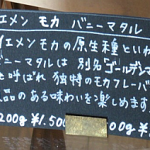 イエメン モカ バニーマタル
イエメンモカの原生種といわ
バニーマタルは 別名ゴールデンマ
と呼ばれ 独特のモカフレーバ
品のある味わいを楽しめます
200g ¥1.500
00g ¥